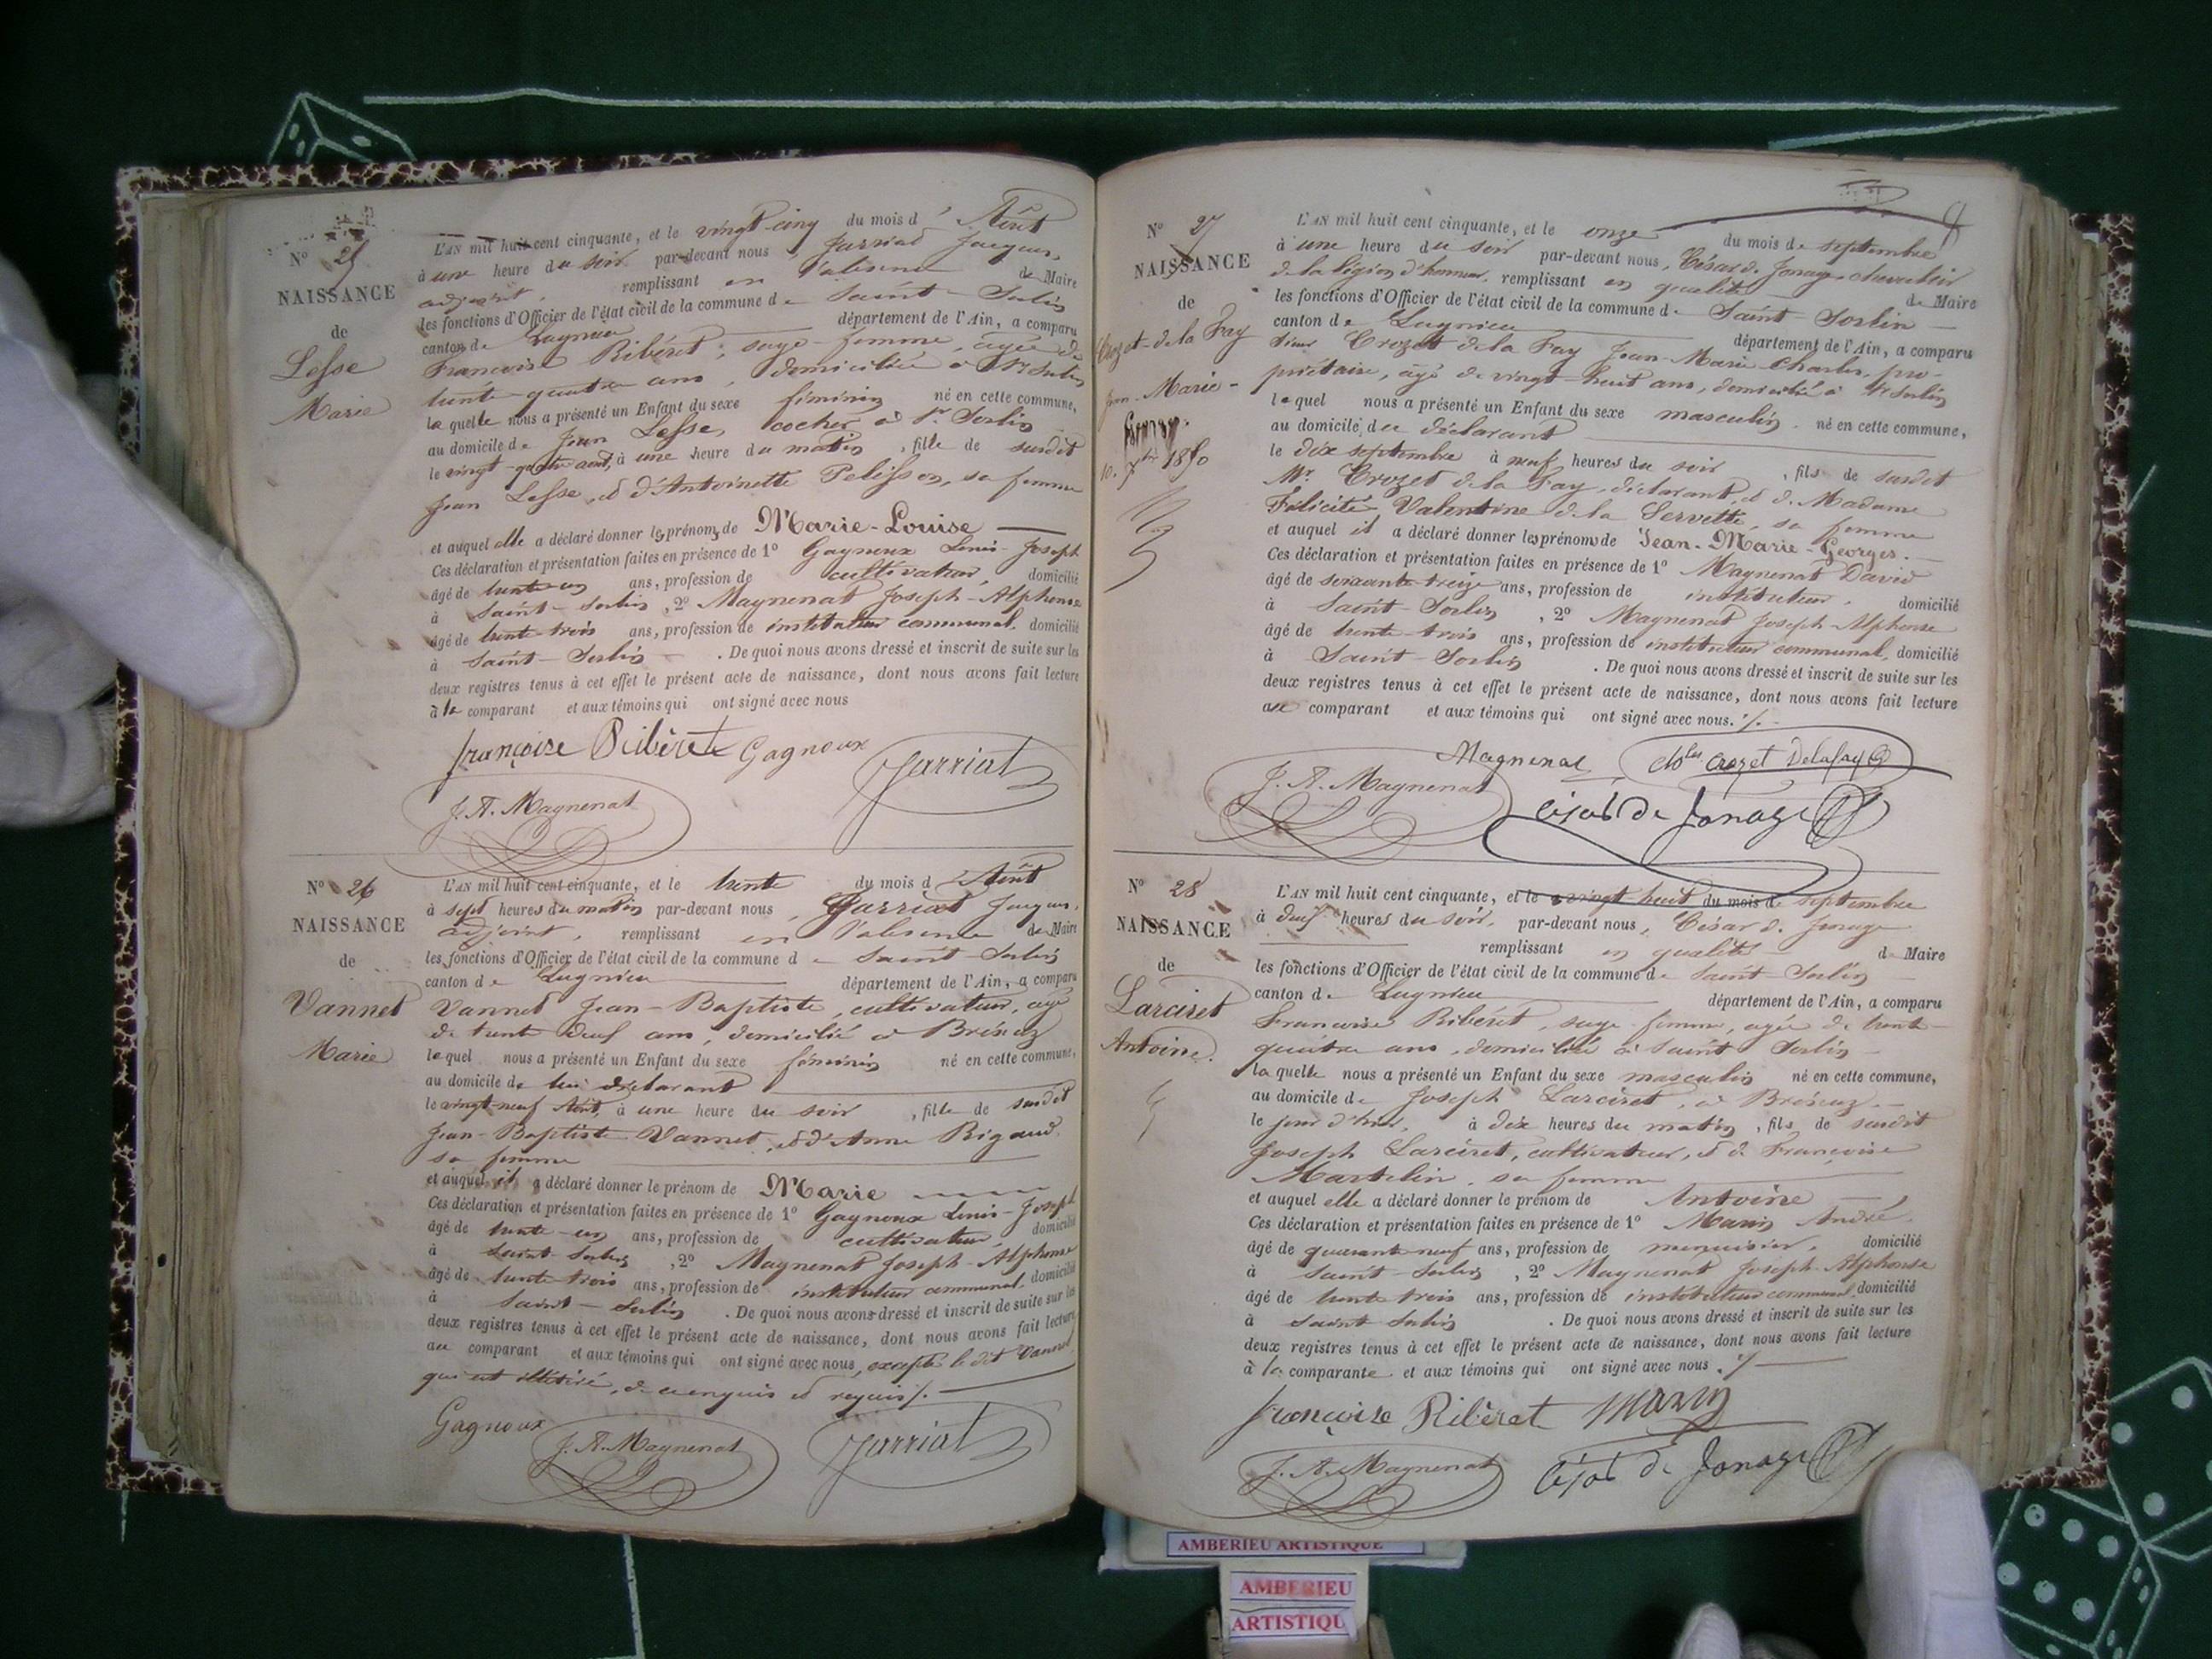 N° 25
NAISSANCE
de
Lesse
Marie
L'AN mil huit cent cinquante, et le vingt-cinq du mois d' Août
à une heure du soir par-devant nous Jarriat Jacques,
adjoint, remplissant en l'absence de Maire
les fonctions d'Officier de l'état civil de la commune de Saint-Sorlin
canton de Lagnieu département de l'Ain, a comparu
Francoise Ribéret, sage-femme, âgée de
trente-quatre ans, domiciliée à St Sorlin
laquelle nous a présenté un Enfant du sexe féminin né en cette commune,
au domicile de Jean Lesse, cocher à St Sorlin
le vingt-quatre août, à une heure du matin, fille de susdit
Jean Lesse, et d'Antoinette Pelisson, sa femme
et auquel elle a déclaré donner les prénoms de Marie-Louise
Ces déclaration et présentation faites en présence de 1° Gagnoux Louis-Joseph
âgé de trente-un ans, profession de cultivateur, domicilié
à Saint-Sorlin, 2° Magnenat Joseph-Alphonse
âgé de trente-trois ans, profession de instituteur communal, domicilié
à Saint-Sorlin. De quoi nous avons dressé et inscrit de suite sur les
deux registres tenus à cet effet le présent acte de naissance, dont nous avons fait lecture
à la comparant et aux témoins qui ont signé avec nous
françoise Ribèrete Gagnoux Jarriat
J. A. Magnenat
N° 26
NAISSANCE
de
Vannet
Marie
L'AN mil huit cent cinquante, et le trente du mois d'Août
à sept heures du matin par-devant nous, Jarriat Jacques,
adjoint, remplissant en l'absence de Maire
les fonctions d'Officier de l'état civil de la commune de Saint-Sorlin
canton de Lagnieu département de l'Ain, a comparu
Vannet Jean-Baptiste, cultivateur, âgé
de trente deux ans, domicilié à Brénaz
lequel nous a présenté un Enfant du sexe féminin né en cette commune,
au domicile de lui déclarant
le vingt-neuf Août, à une heure du soir, fille de susdit
Jean-Baptiste Vannet, et d'Anne Rigaud
sa femme
et auquel il a déclaré donner le prénom de Marie
Ces déclaration et présentation faites en présence de 1° Gagnoux Louis-Joseph
âgé de trente-un ans, profession de cultivateur, domicilié
à Saint-Sorlin, 2° Magnenat Joseph-Alphonse
âgé de trente-trois ans, profession de instituteur communal, domicilié
à Saint-Sorlin. De quoi nous avons dressé et inscrit de suite sur les
deux registres tenus à cet effet le présent acte de naissance, dont nous avons fait lecture
au comparant et aux témoins qui ont signé avec nous, excepté le dit Vannet
qui est illétiré, de ce enquis et requis
Gagnoux
J. A. Magnenat Jarriat
N° 27
NAISSANCE
de
Crozet-de la Fay
Jean-Marie-
10. 7bre 1850
L'AN mil huit cent cinquante, et le onze du mois de septembre
à une heure du soir par-devant nous, César de Jonage, chevalier
de la légion d'honneur, remplissant en qualité de Maire
les fonctions d'Officier de l'état civil de la commune de Saint-Sorlin
canton de Lagnieu département de l'Ain, a comparu
sieur Crozet de la Fay Jean-Marie-Charles, pro-
priétaire, âgé de vingt-huit ans, domicilié à St Sorlin
lequel nous a présenté un Enfant du sexe masculin né en cette commune,
au domicile du déclarant
le dix septembre à neuf heures du soir, fils de susdit
Mr. Crozet de la Fay, déclarant, et de Madame
Félicité Valentine de la Servette, sa femme
et auquel il a déclaré donner les prénoms de Jean-Marie-Georges.
Ces déclaration et présentation faites en présence de 1° Magnenat David
âgé de soixante-treize ans, profession de instituteur, domicilié
à Saint-Sorlin, 2° Magnenat Joseph-Alphonse
âgé de trente-trois ans, profession de instituteur communal, domicilié
à Saint-Sorlin. De quoi nous avons dressé et inscrit de suite sur les
deux registres tenus à cet effet le présent acte de naissance, dont nous avons fait lecture
au comparant et aux témoins qui ont signé avec nous.
Magnenat chles crozet Delafay
J. A. Magnenat César de Jonage
N° 28
NAISSANCE
de
Larciret
Antoine.
L'AN mil huit cent cinquante, et le vingt-huit du mois de septembre
à deux heures du soir, par-devant nous, César de Jonage
remplissant en qualité de Maire
les fonctions d'Officier de l'état civil de la commune de Saint-Sorlin
canton de Lagnieu département de l'Ain, a comparu
Francoise Ribéret, sage-femme, âgée de trente-
quatre ans, domiciliée à Saint Sorlin
laquelle nous a présenté un Enfant du sexe masculin né en cette commune,
au domicile de Joseph Larciret, à Brénaz
le jour d'hier, à dix heures du matin, fils de susdit
Joseph Larciret, cultivateur, et de Françoise
Martelin, sa femme
et auquel elle a déclaré donner le prénom de Antoine
Ces déclaration et présentation faites en présence de 1° Marin André,
âgé de quarante-neuf ans, profession de menuisier, domicilié
à Saint-Sorlin, 2° Magnenat Joseph-Alphonse
âgé de trente-trois ans, profession de instituteur communal, domicilié
à Saint Sorlin. De quoi nous avons dressé et inscrit de suite sur les
deux registres tenus à cet effet le présent acte de naissance, dont nous avons fait lecture
à la comparante et aux témoins qui ont signé avec nous.
françoise Ribèret Marin
J. A. Magnenat César de Jonage
AMBERIEU ARTISTIQUE
AMBERIEU
ARTISTIQU